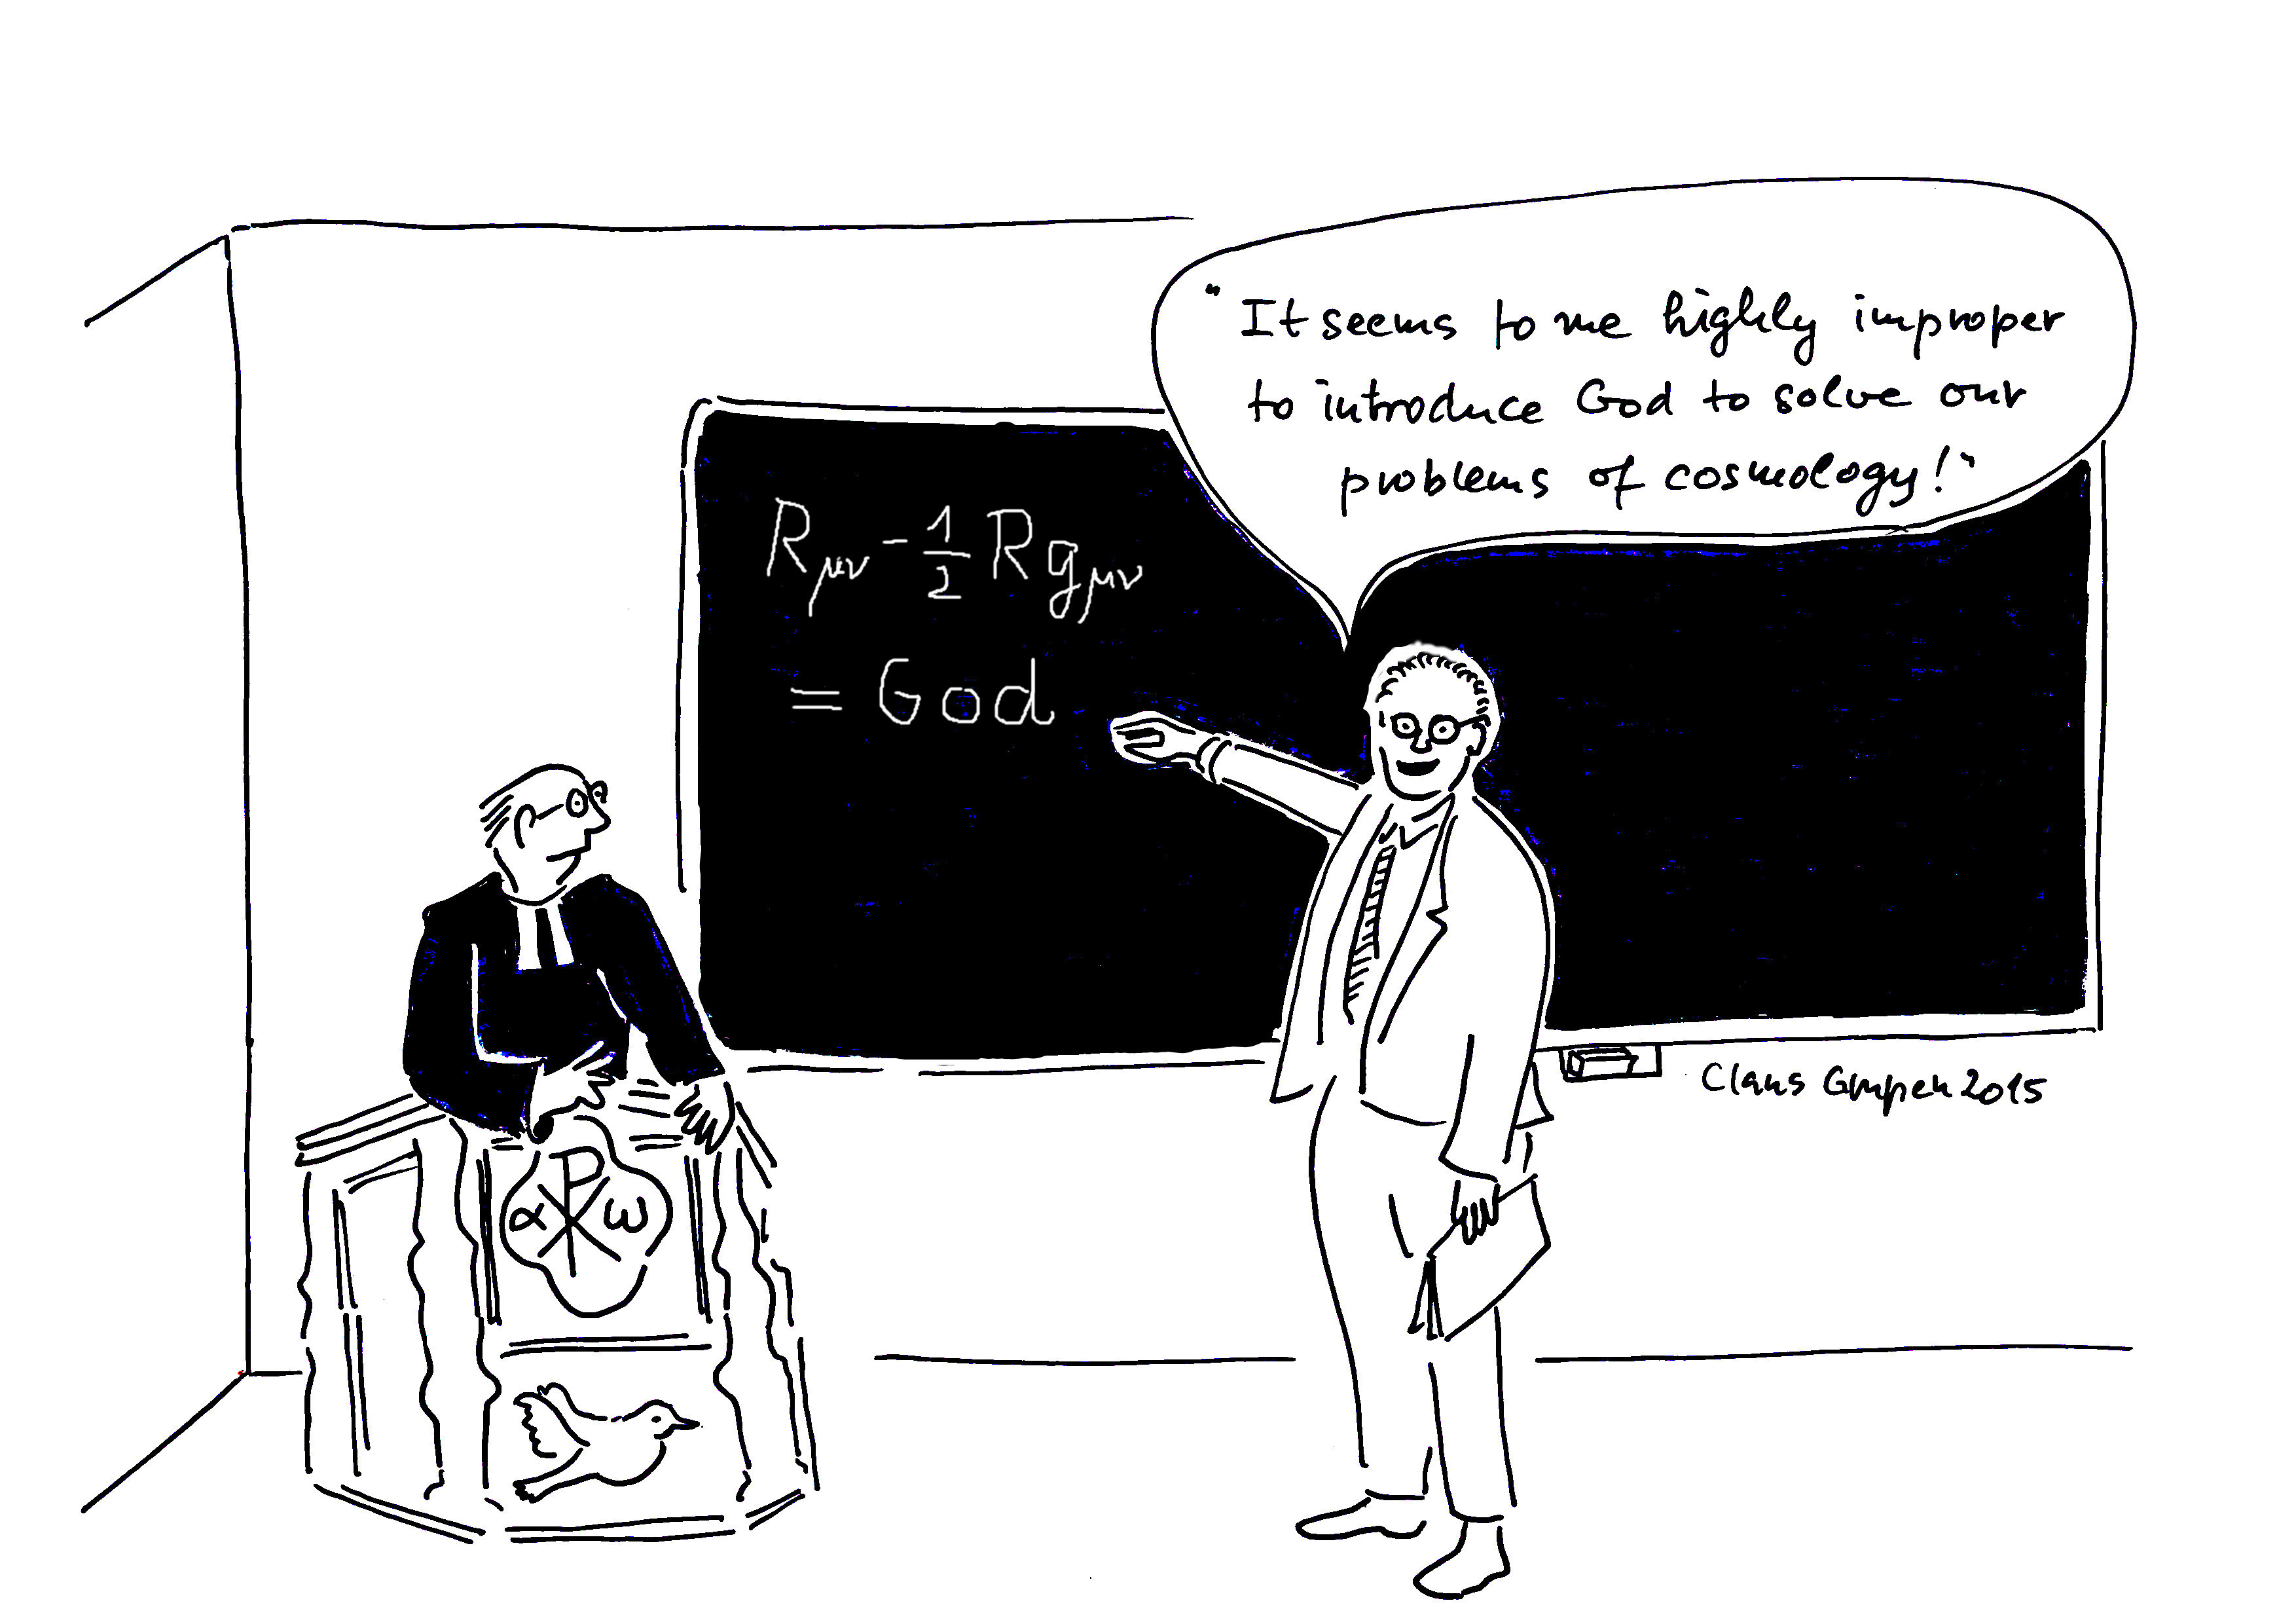 "It seems to me highly improper
to introduce God to solve our
problems of cosmology!"
Rμν - 1/2 R gμν
= God
Claus Grupen 2015
α ☧ ω